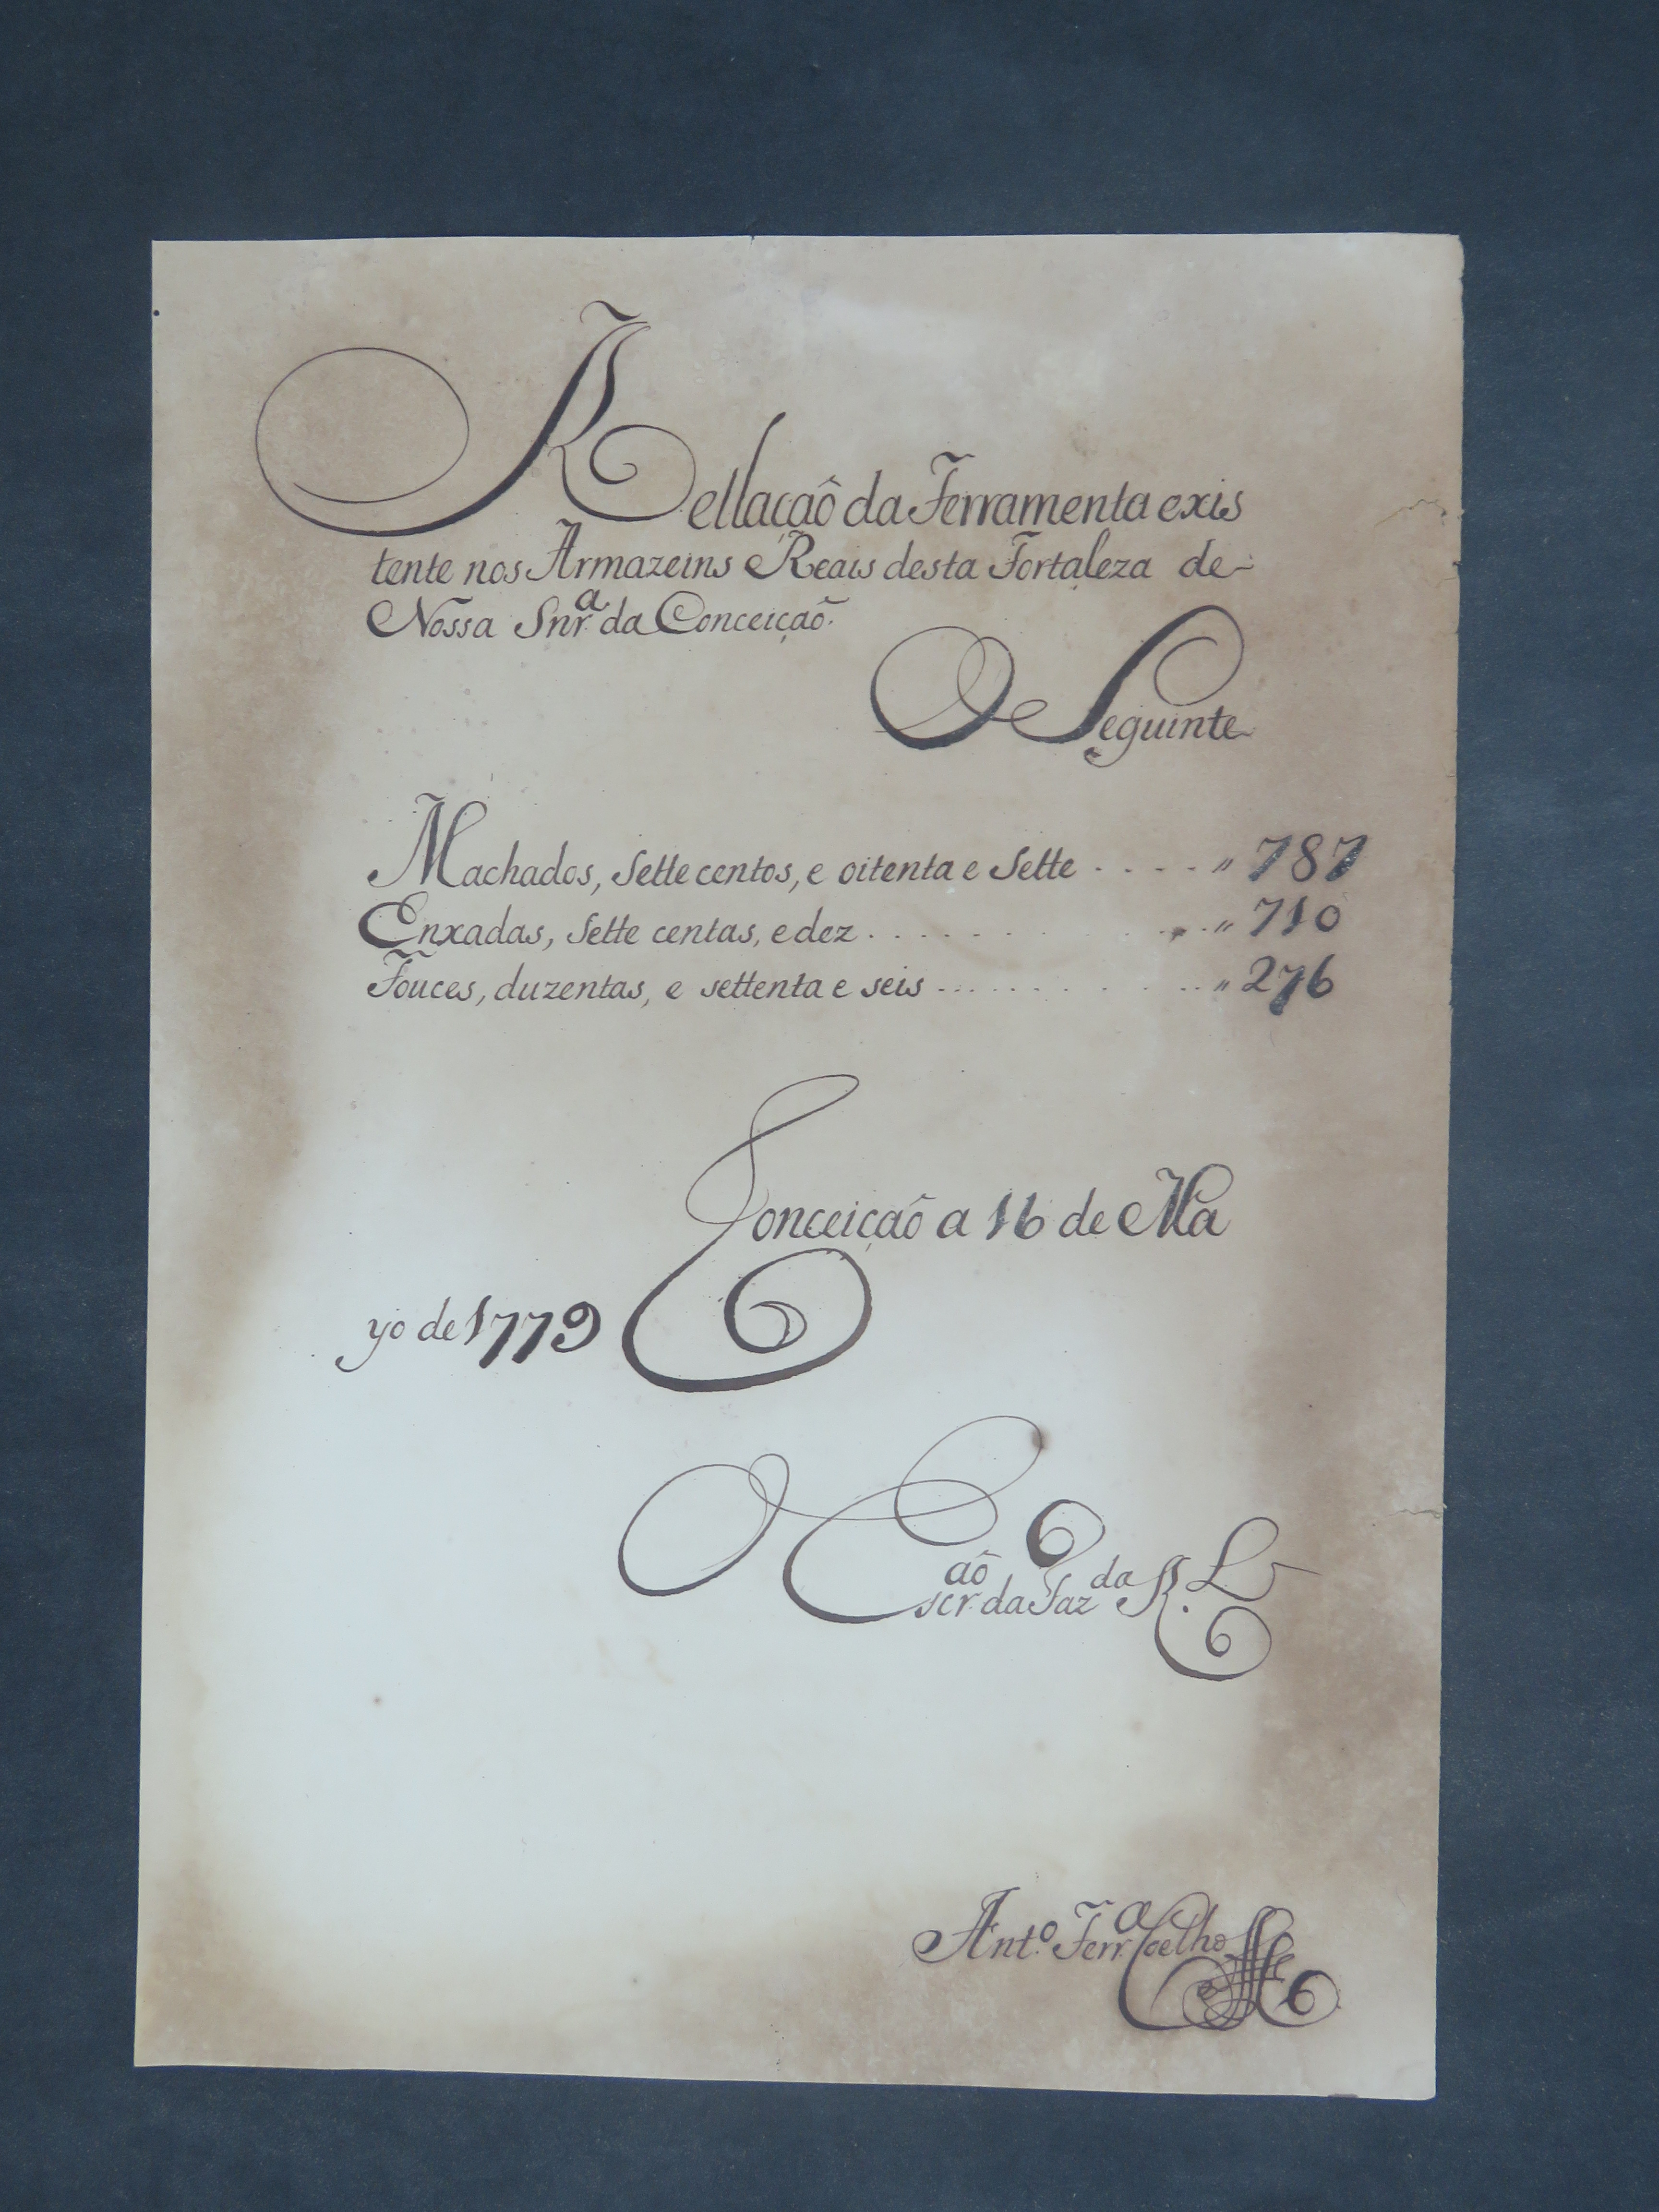 Rellaçaõ da Ferramenta exis
tente nos Armazeins Reais desta Fortaleza de
Nossa Snr.ª da Conceiçaõ.
O Seguinte
Machados, settecentos, e oitenta e sette . . . . . " 787
Enxadas, sette centas, e dez . . . . . . . . . . " 710
Fouces, duzentas, e settenta e seis . . . . . . . . . . " 276
Conceiçaõ a 16 de Ma
yo de 1779
O Escr.aõ da Faz.da R.L
Ant.º Ferr.ª Coelho